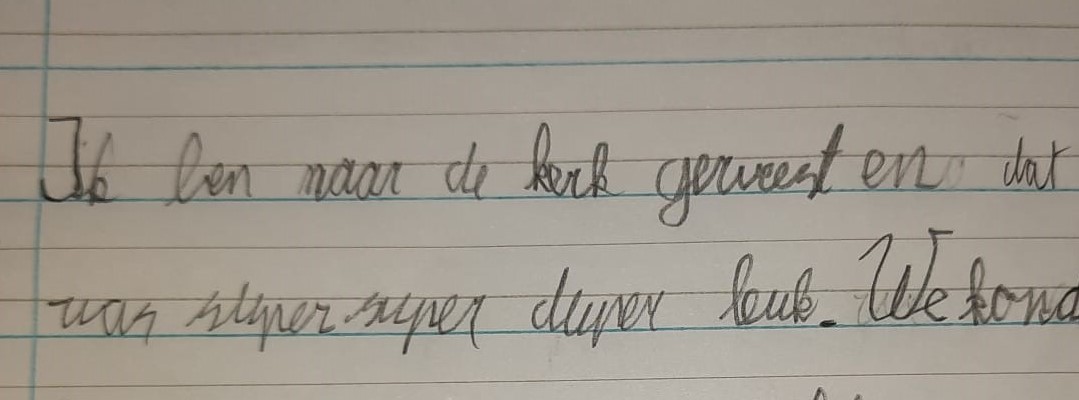 Ik ben naar de kerk geweest en dat
was super super duper leuk. We kond